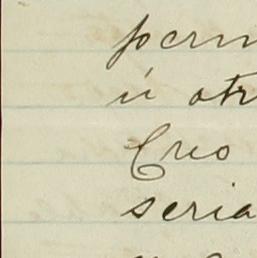 perm
ú otr
Creo
seria